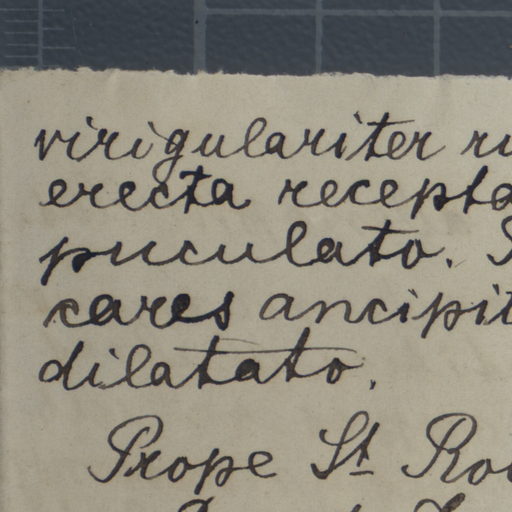 virigulariter
erecta recepta
puculato.
cares ancipit
dilatato.
Prope St Ro